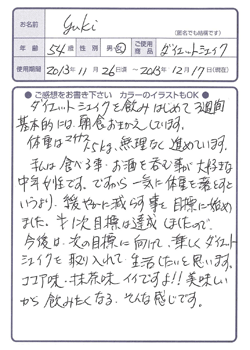 お名前
yuki
(匿名でも結構です)
年齢 54歳 性別 男・女 ご使用商品 ダイエットシェイク
使用期間 2013年11月26日頃 ～ 2013年12月17日(現在)
●ご感想をお書き下さい カラーのイラストもOK●
ダイエットシェイクを飲みはじめて3週間
基本的には、朝食おきかえしています。
体重はマイナス2.5kg、無理なく進めています。
私は食べる事・お酒を呑む事が大好きな
中年女性です。ですから一気に体重を落とすと
いうより、緩やかに減らす事を目標に始め
ました。半に次目標は達成しましたので
今後は、次の目標に向けて、楽しくダイエット
シェイクを取り入れて生活したいと思います。
ココア味・抹茶味 イイですよ!! 美味しい
から飲みたくなる、そんな感じです。